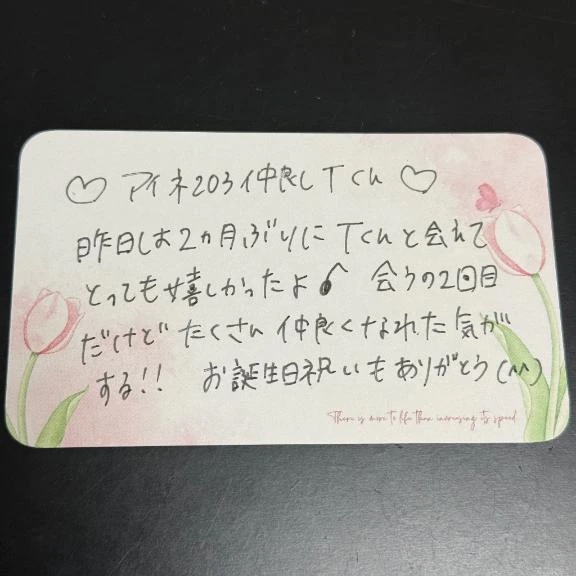 ♡ アイネ203仲良しTくん ♡
昨日は2ヵ月ぶりにTくんと会えて
とっても嬉しかったよ♪ 会うの2回目
だけど たくさん仲良くなれた気が
する!! お誕生日祝いもありがとう(^^)
There is more to life than increasing its speed